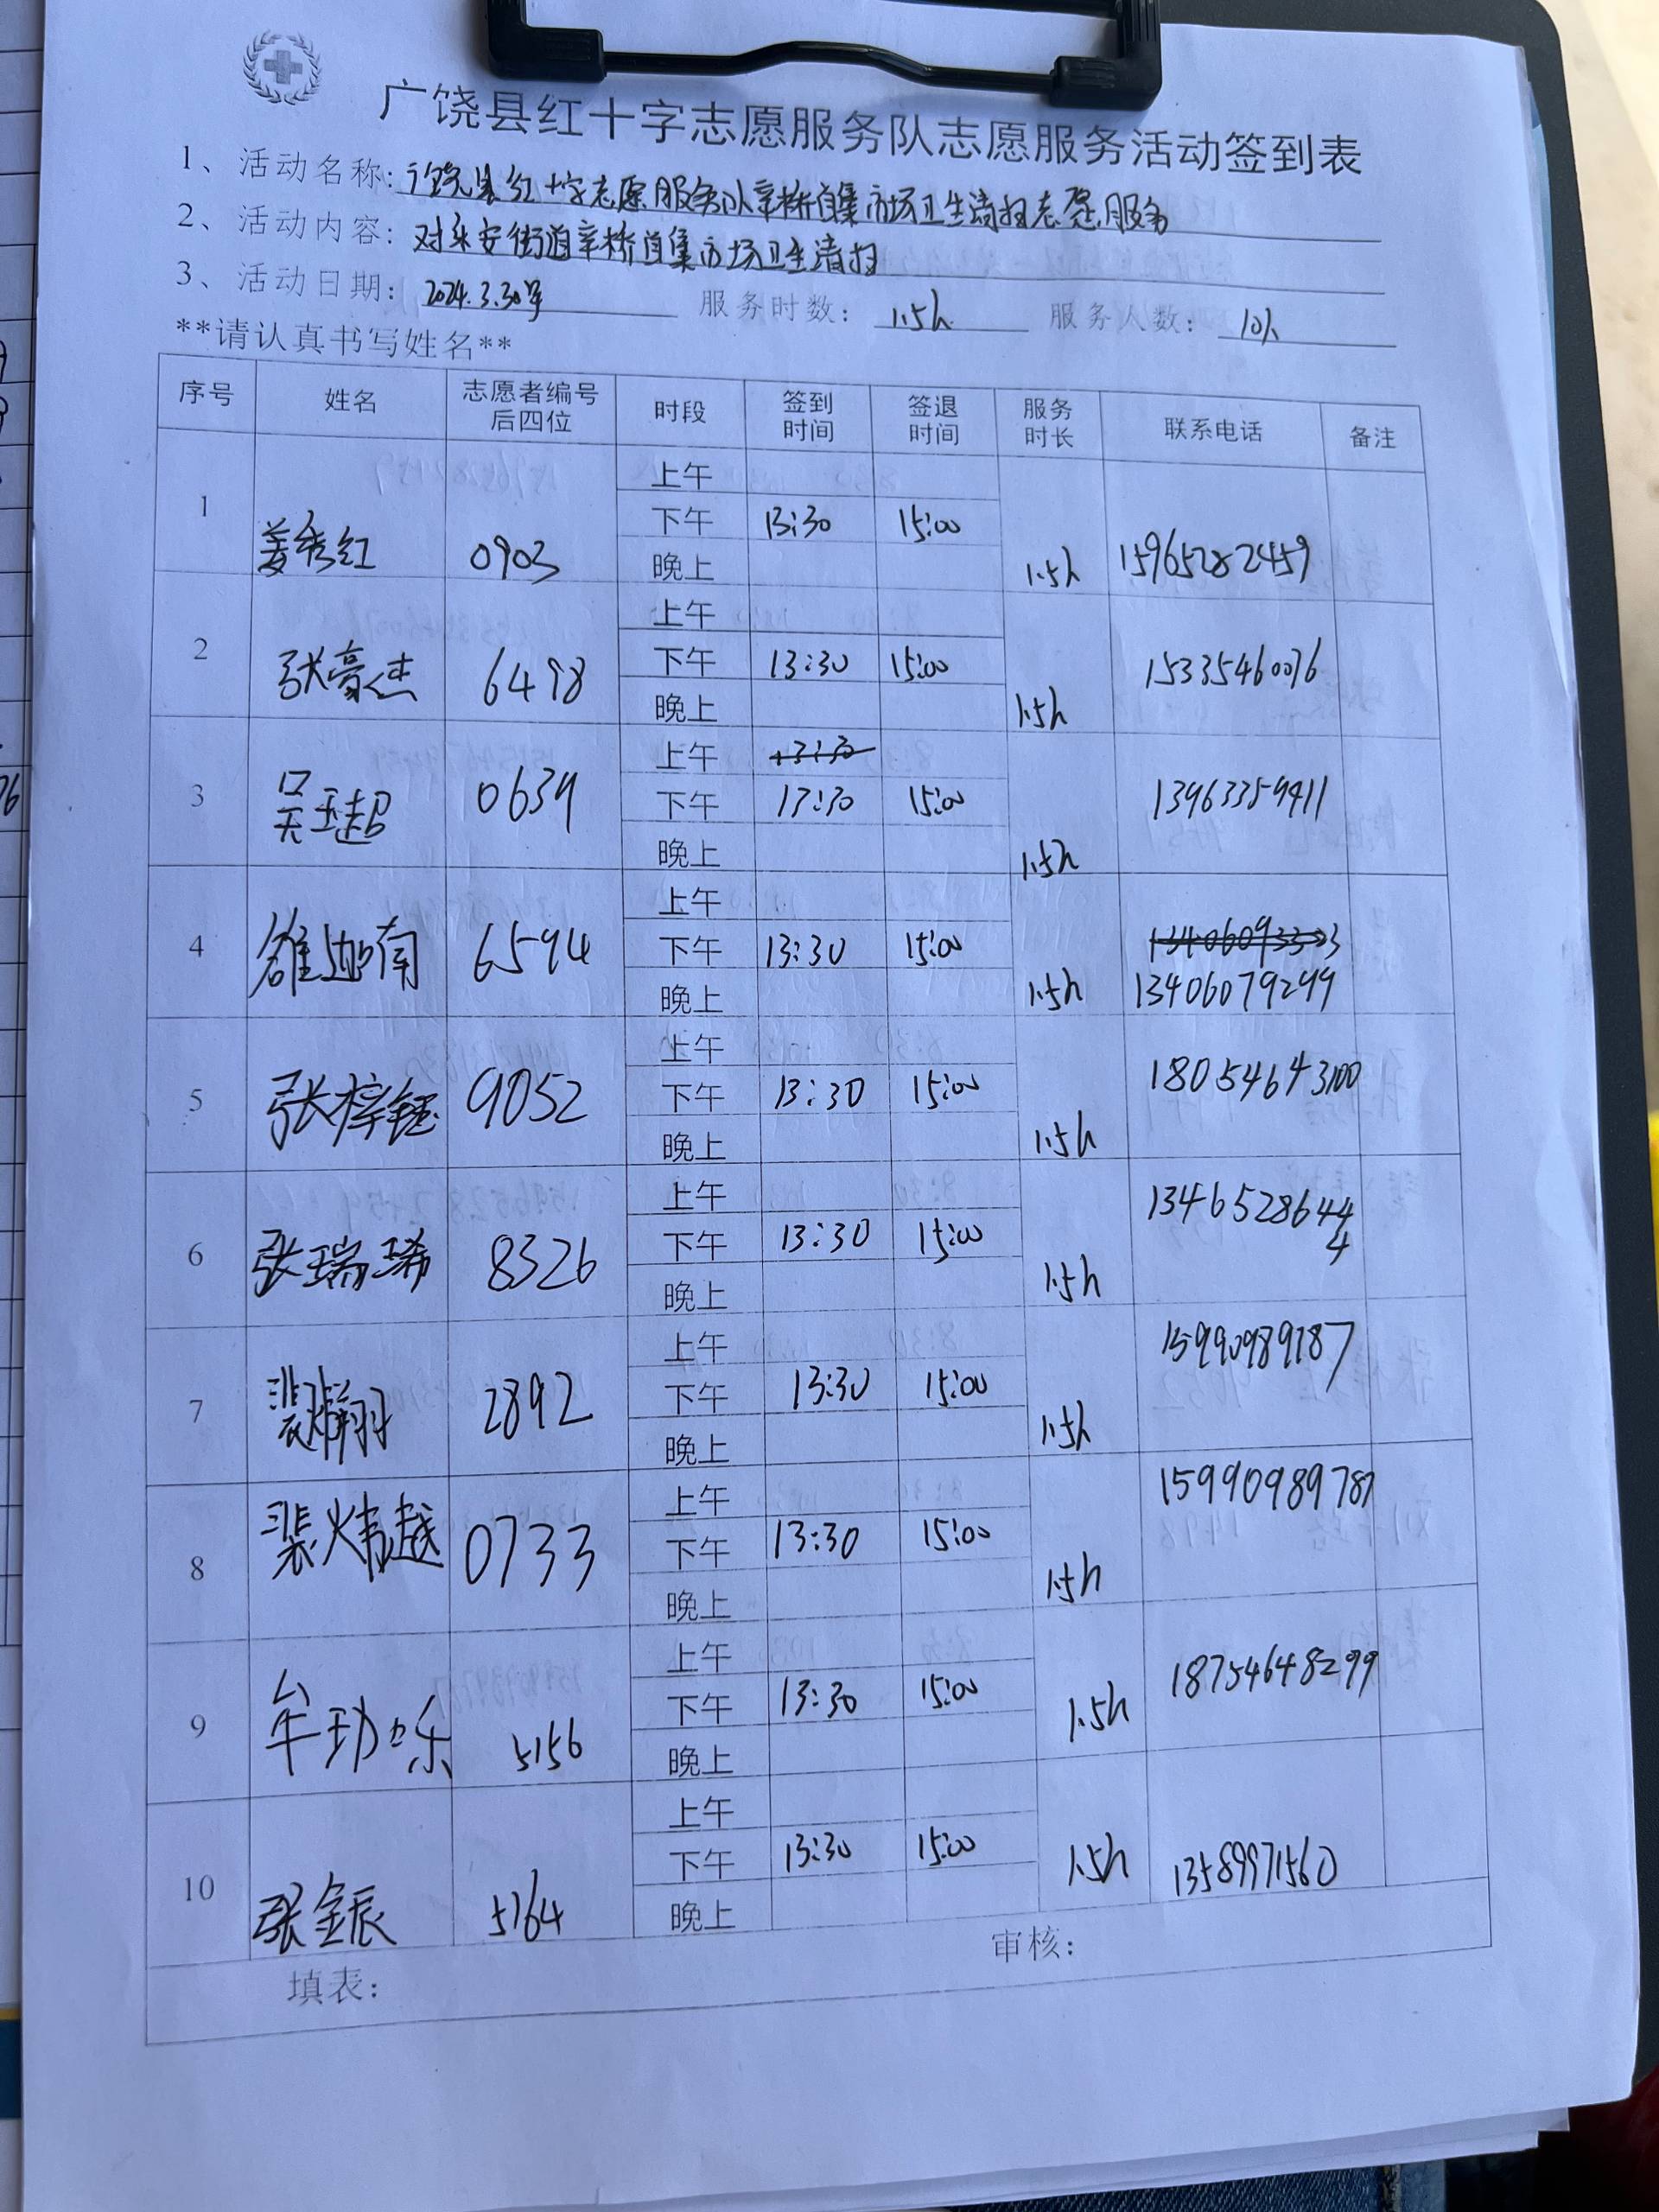 广饶县红十字志愿服务队志愿服务活动签到表
1、活动名称: 广饶县红十字志愿服务队辛桥自集市场卫生清扫志愿服务
2、活动内容: 对永安街道辛桥自集市场卫生清扫
3、活动日期: 2024.3.30 服务时数: 1.5h 服务人数: 10人
**请认真书写姓名**
序号 姓名 志愿者编号后四位 时段 签到时间 签退时间 服务时长 联系电话 备注
上午
1 姜秀红 0903 下午 13:30 15:00 1.5h 15965282459
晚上
上午
2 张豪杰 6498 下午 13:30 15:00 1.5h 15335460076
晚上
上午 13:30
3 吴玉超 0639 下午 13:30 15:00 1.5h 13963359411
晚上
上午
4 南 6594 下午 13:30 15:00 1.5h 13406079299
晚上
上午
5 张梓钰 9052 下午 13:30 15:00 1.5h 18054643100
晚上
上午
6 张瑞琋 8326 下午 13:30 15:00 1.5h 13465286444
晚上
上午
7 裴翔 2892 下午 13:30 15:00 1.5h 15990989787
晚上
上午
8 裴炜越 0733 下午 13:30 15:00 1.5h 15990989787
晚上
上午
9 牟乐 5156 下午 13:30 15:00 1.5h 18754648299
晚上
上午
10 张金辰 5164 下午 13:30 15:00 1.5h 13589971560
晚上
填表: 审核: